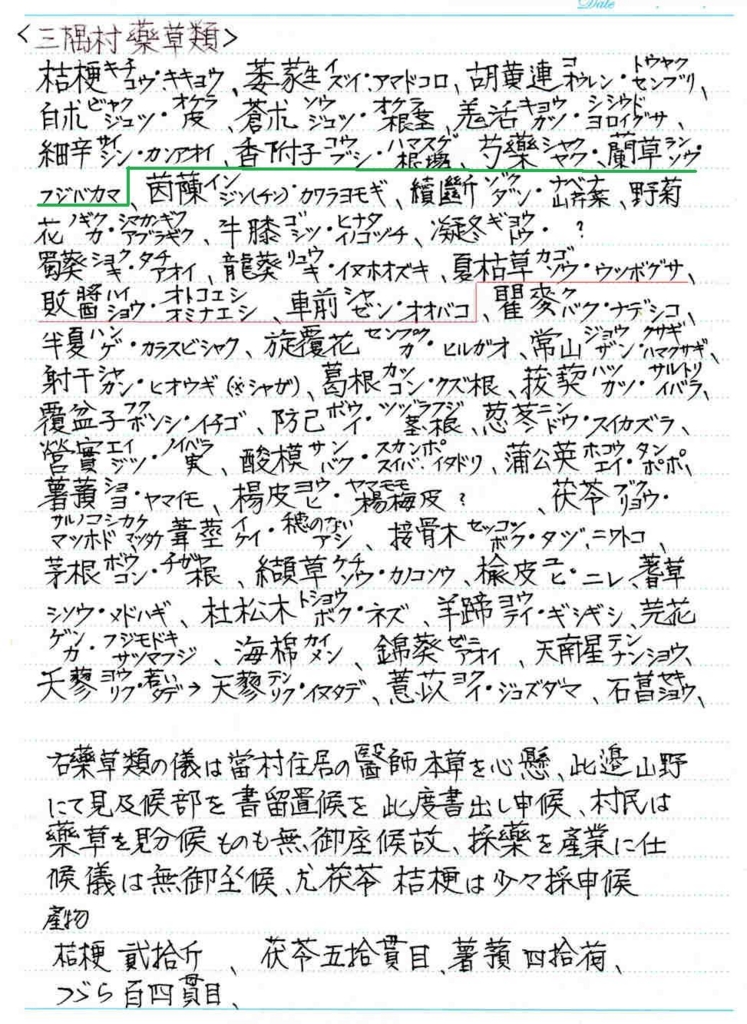 Date
<三隅村藥草類>
桔梗キチコウ・キキョウ、萎蕤生イズイ・アマドコロ、胡黄連コオウレン・トウヤクセンブリ、
白朮ビャクジュツ・オケラ皮、蒼朮ソウジュツ・オケラ根莖、羗活キョウカツ・シシウドヨロイグサ、
細辛サイシン・カンアオイ、香附子コウブシ・ハマスゲ根塊、芍藥シャクヤク・蘭草ランソウ・
フジバカマ、茵蔯インジン(チン)・カワラヨモギ、續斷ゾクダン・ナベナ山芹菜、野菊
花ノギクカ・シマカンギクアブラギク、牛膝ゴシツ・ヒナタイノコヅチ、凝冬ギョウトウ・?
蜀葵ショクキ・タチアオイ、龍葵リュウキ・イヌホオズキ、夏枯草カゴソウ・ウツボグサ、
敗醬ハイショウ・オトコエシオミナエシ、車前シャゼン・オオバコ、瞿麥クバク・ナデシコ、
半夏ハンゲ・カラスビシャク、旋覆花センプクカ・ヒルガオ、常山ジョウザン・クサギハマクサギ、
射干シャカン・ヒオウギ(※シャガ)、葛根カッコン・クズ根、菝葜ハツカツ・サルトリイバラ、
覆盆子フクボンシ・イチゴ、防己ボウイ・ツヅラフジ茎根、忍冬ニンドウ・スイカズラ、
營實エイジツ・ノイバラ実、酸模サンバク・スカンポスイバ・イタドリ、蒲公英ホコウエイ・タンポポ、
薯蕷ショヨ・ヤマイモ、楊皮ヨウヒ・ヤマモモ楊梅皮?、茯苓ブクリョウ・
サルノコシカケマツホド マツタケ、葦莖イケイ・穂のないアシ、接骨木セッコツボク・タヅ、ニワトコ、
茅根ボウコン・チガヤ根、纈草ケチソウ・カノコソウ、楡皮ユヒ・ニレ、蓍草
シソウ・メドハギ、杜松木トショウボク・ネズ、羊蹄ヨウテイ・ギシギシ、芫花
ゲンカ・フジモドキサツマフジ、海棉カイメン、錦葵ゼニアオイ、天南星テンナンショウ、
夭蓼ヨウリク・若いタデ→天蓼テンリク・イヌタデ、薏苡ヨクイ・ジュズダマ、石菖セキショウ、
右藥草類の儀は當村住居の醫師本草を心懸、此邉山野
にて見及候部を書留置候を此度書出し申候、村民は
藥草を見分候ものも無御座候故、採藥を産業に仕
候儀は無御座候、尤茯苓桔梗は少々採申候
産物
桔梗 貳拾斤、茯苓五拾貫目、薯蕷四拾荷、
つづら百四貫目、